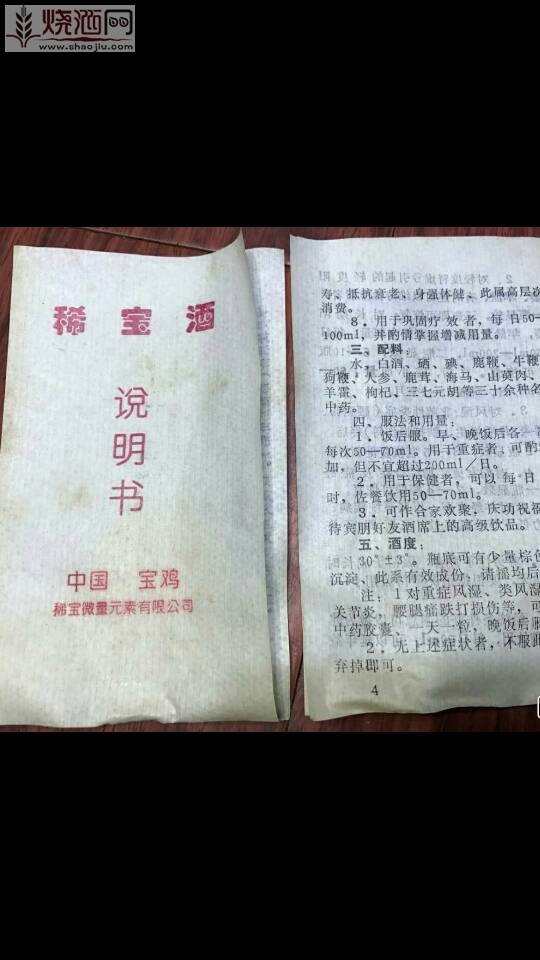 烧酒网
www.shaojiu.com
稀宝酒
说明书
中国 宝鸡
稀宝微量元素有限公司
寿、抵抗衰老、身强体健、此属高层次
消费。
8．用于巩固疗效者，每日50—
100ml，并酌情掌握增减用量。
三、配料
水，白酒、硒、碘、鹿鞭、牛鞭
狗鞭、人参、鹿茸、海马、山萸肉、
羊霍、枸杞、三七元胡等三十余种名
中药。
四、服法和用量：
1、饭后服。早、晚饭后各一
每次50—70ml。用于重症者，可酌
加，但不宜超过200ml／日。
2．用于保健者，可以每日
时，佐餐饮用50—70ml。
3．可作合家欢聚，庆功祝福
待宾朋好友酒席上的高级饮品。
五、酒度：
30°±3°。瓶底可有少量棕色
沉淀，此系有效成份，请摇均后
注：1对重症风湿、类风湿
关节炎，腰腿痛跌打损伤等，可
中药胶囊、一天一粒，晚饭后服
2．无上述症状者，不服此
弃掉即可。
4